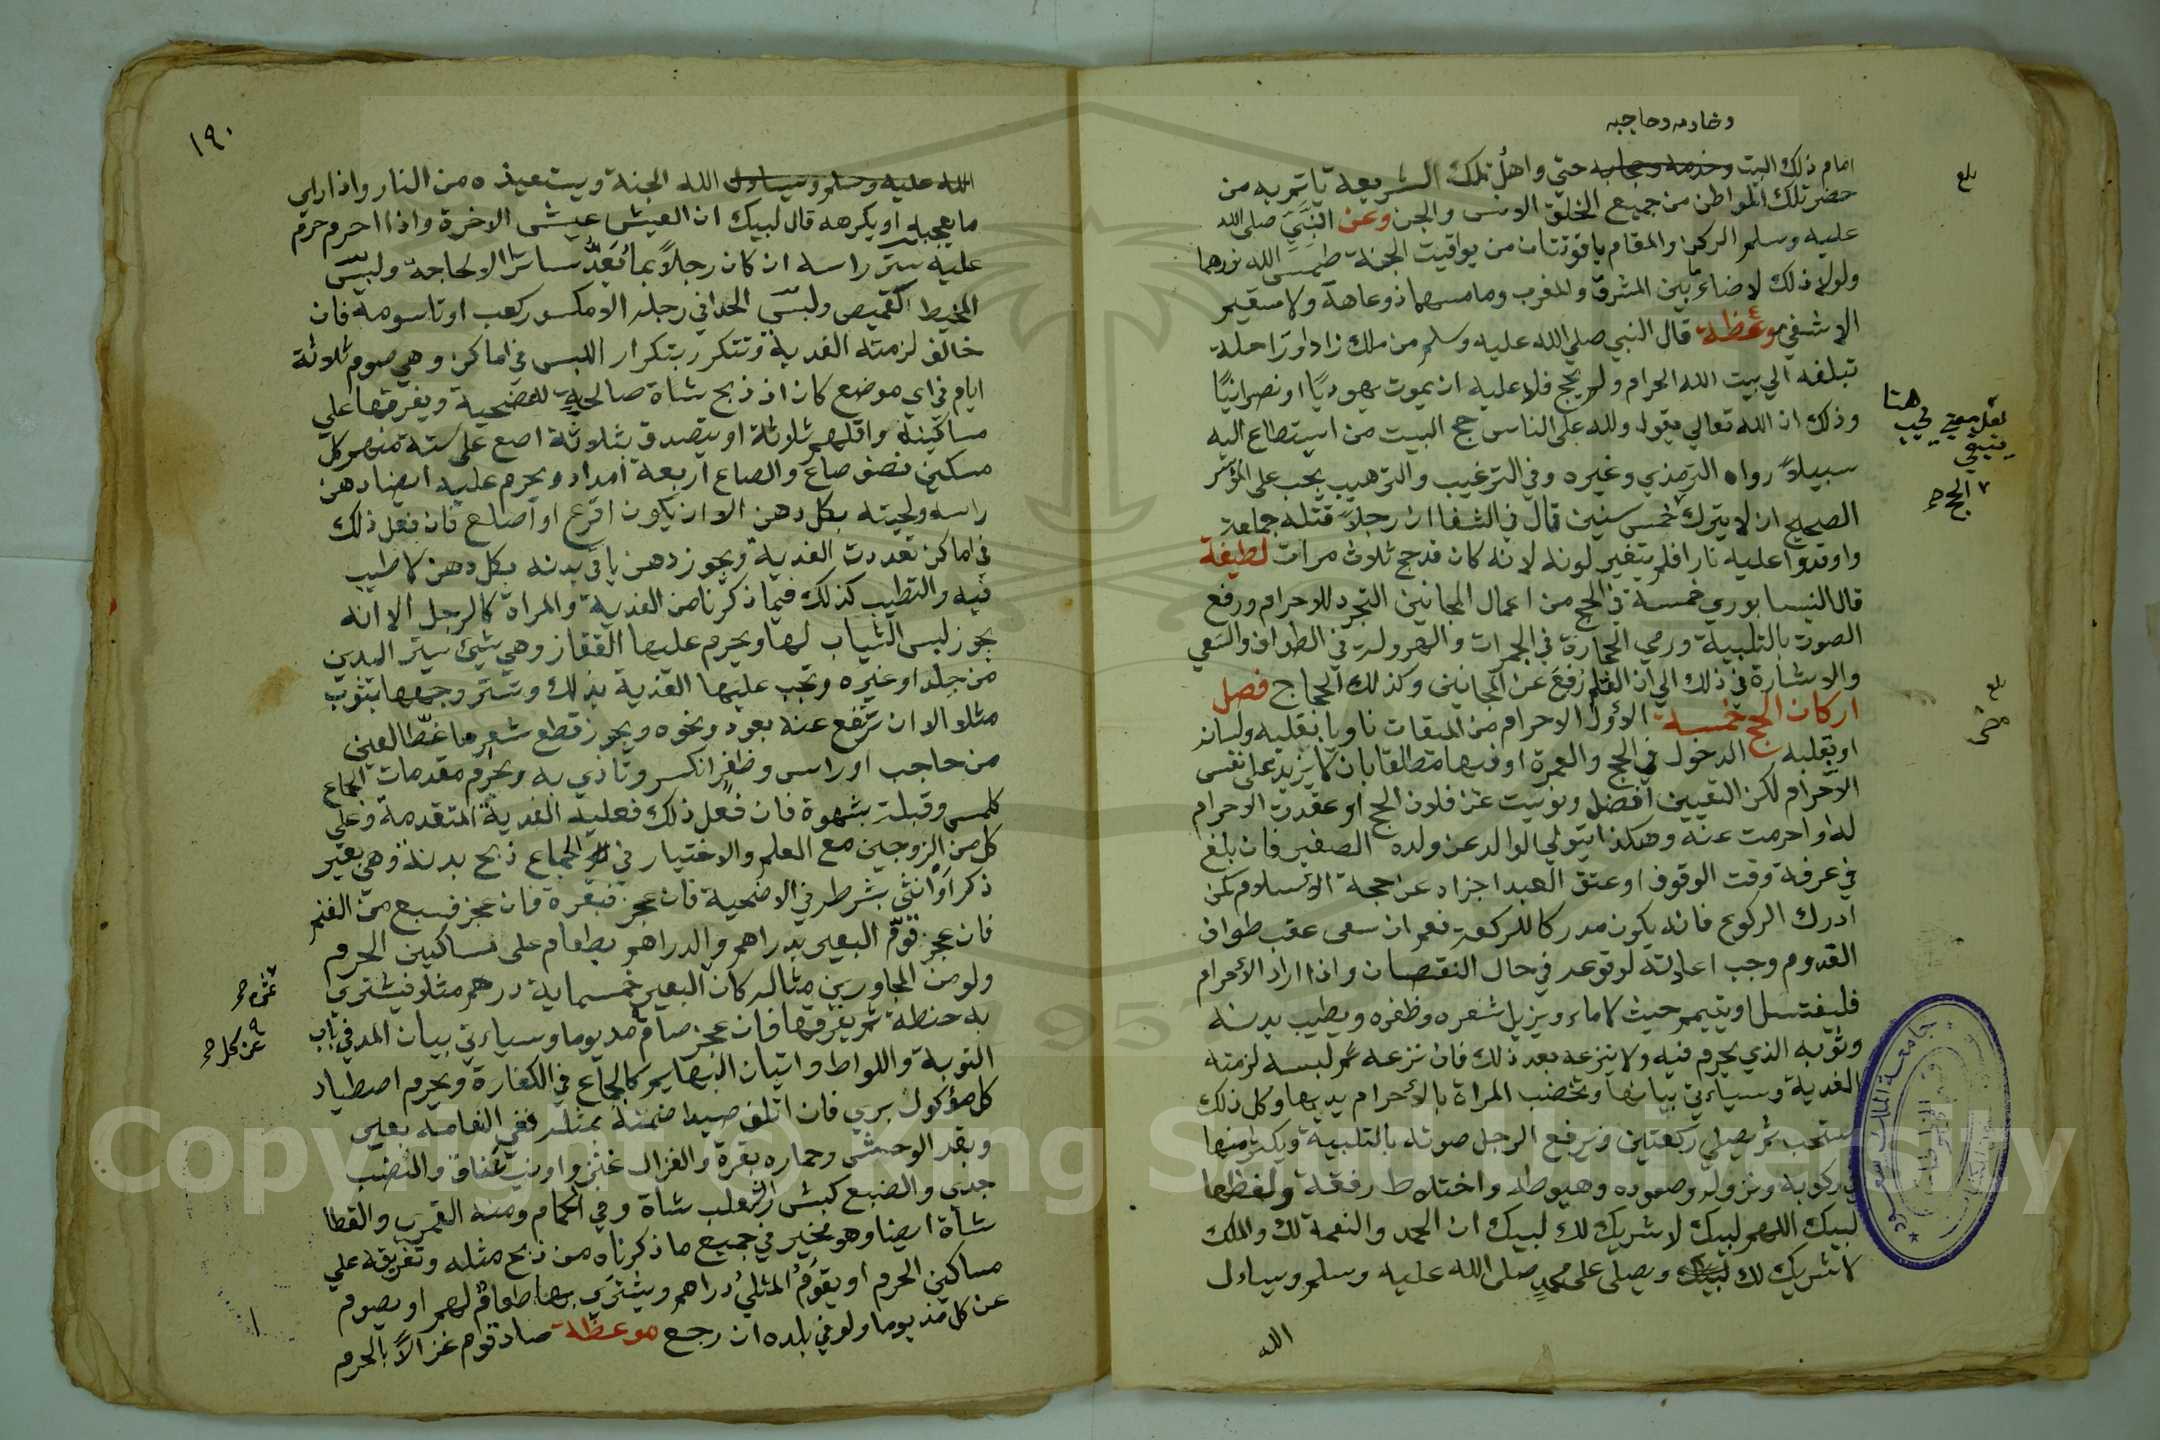 وخادمه وحاجبه
امام ذلك البيت وخدمه وحجابه حتي واهل تلك الشريعة يأتمر به من
حضر تلك المواطن من جميع الخلق الانس والجن وعن النبي صلى الله
عليه وسلم الركن والمقام ياقوتتان من يواقيت الجنة طمس الله نورهما
ولولا ذلك لاضاء ما بين المشرق والمغرب وما مسهما ذو عاهة ولا سقيم
الا شفي موعظة قال النبي صلي الله عليه وسلم من ملك زادا وراحلة
تبلغه الي بيت الله الحرام ولم يحج فلا عليه ان يموت يهوديًا او نصرانيًا
وذلك ان الله تعالي يقول ولله على الناس حج البيت من استطاع اليه
سبيلاً رواه الترمذي وغيره وفي الترغيب والترهيب يجب على المؤسر
الصحيح ان لا يترك خمس سنين قال في الشفا ان رجلاً قتله جماعة
واوقدوا عليه نارا فلم يتغير لونه لانه كان قد حج ثلاث مرات لطيفة
قال النيسابوري خمسة في الحج من اعمال المجانين التجرد للاحرام ورفع
الصوت بالتلبية ورمي الحجارة في الجمرات والهرولة في الطواف والسعي
والاشارة في ذلك الي ان القلم رفع عن المجانين وكذلك الحجاج فصل
اركان الحج خمسة الاول الاحرام من الميقات ناويا بقلبه ولسانه
او بقلبه الدخول في الحج والعمرة او فيهما مطلقا بان لا يزيد على نفس
الاحرام لكن التعيين افضل ونويت عن فلان الحج او عقدت الاحرام
له او احرمت عنه وهكذا يتولي الوالد عن ولده الصغير فان بلغ
في عرفة وقت الوقوف او عتق العبد اجزاه عن حجة الاسلام كمن
ادرك الركوع فانه يكون مدركا للركعة نعم ان سعى عقب طواف
القدوم وجب اعادته لوقوعه في حال النقصان واذا اراد الاحرام
فليغتسل او يتيمم حيث لا ماء ويزيل شعره وظفره ويطيب بدنه
وثوبه الذي يحرم فيه ولا ينزعه بعد ذلك فان نزعه ثم لبسه لزمته
الفدية وسيأتي بيانها وتخضب المراة بالاحرام يديها وكل ذلك
مستحب ثم يصلي ركعتين ويرفع الرجل صوته بالتلبية ويكثر منها
في ركوبه ونزوله وصعوده وهبوطه واختلاط رفقة ولفظها
لبيك اللهم لبيك لا شريك لك لبيك ان الحمد والنعمة لك والملك
لا شريك لك لبيك ويصلى على محمد صلى الله عليه وسلم وسياول
الله
بلغ
لعل معنى يجب هنا
ينبغي
الحج
بلغ
١٩٠
الله عليه وسلم وسياول الله الجنة ويستعيذه من النار واذا راي
ما يعجبه او يكرهه قال لبيك ان العيش عيش الاخرة واذا احرم حرم
عليه ستر راسه ان كان رجلاً بما يُعَدُّ ساترا الا لحاجة ولبس
المخيط كقميص ولبس الحذا في رجله الا مكسر ركعب او تاسومة فان
خالف لزمته الفدية وتتكرر بتكرار اللبس في اماكن وهي صوم ثلاثة
ايام في اي موضع كان اذ ذبح شاة صالحة للضحية ويفرقها علي
مساكينه واقلهم ثلاثة او يتصدق بثلاثة اصع على ستة منهم كل
مسكين نصف صاع والصاع اربعة امداد ويحرم عليه ايضا دهن
راسه ولحيته بكل دهن الا ان يكون اقرع او اصلع فان فعل ذلك
في اماكن تعددت الفدية ويجوز دهن باقي بدنه بكل دهن لا طيب
فيه والتطيب كذلك فيما ذكرنا من الفدية والمراة كالرجل الا انه
يجوز لبس الثياب لها ويحرم عليها القفاز وهي شيئ يستر اليدين
من جلد او غيره وتجب عليها الفدية بذلك وتستر وجهها بثوب
مثلا الا ان ترفع عنه بعود ونحوه ويجوز قطع شعر ما غطّا العين
من حاجب او راس وظفر انكسر وتاذي به ويحرم مقدمات الجماع
كلمس وقبلة بشهوة فان فعل ذلك فعليه الفدية المتقدمة وعلي
كل من الزوجين مع العلم والاختيار في الجماع ذبح بدنة وهي بعير
ذكر او انثى بشرطه في الاضحية فان عجز فبقرة فان عجز فسبع من الغنم
فان عجز قوّم البعير بدراهم والدراهم بطعام على مساكين الحرم
ولو من المجاورين مثاله كان البعير خمسماية درهم مثلا فيشتري
به حنطة ثم يفرقها فان عجز صام مد يوما وسياتي بيان المد في باب
التوبة واللواط واتيان البهايم كالجماع في الكفارة ويحرم اصطياد
كل ماكول بري فان اتلف صيدا ضمنه بمثله ففي النعامة بعير
وبقر الوحش وحماره بقرة والغزال عنز وارنب عناق والضب
جدي والضبع كبش والثعلب شاة وفي الحمام ومنه القمري والقطا
شاة ايضا وهو مخير في جميع ما ذكرناه من ذبح مثله وتفريقه علي
مساكين الحرم او يقوّمُ المثليُ دراهم ويشتري بها طعام لهم او يصوم
عن كل مد يوما ولو في بلده ان رجع موعظة صاد قوم غزالاً بالحرم
عن كل
جامعة الملك سعود
Copyright © King Saud University
1957